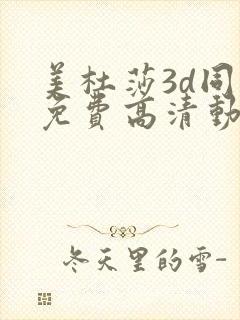 美杜莎3d同
免费高清动
冬天里的雪-